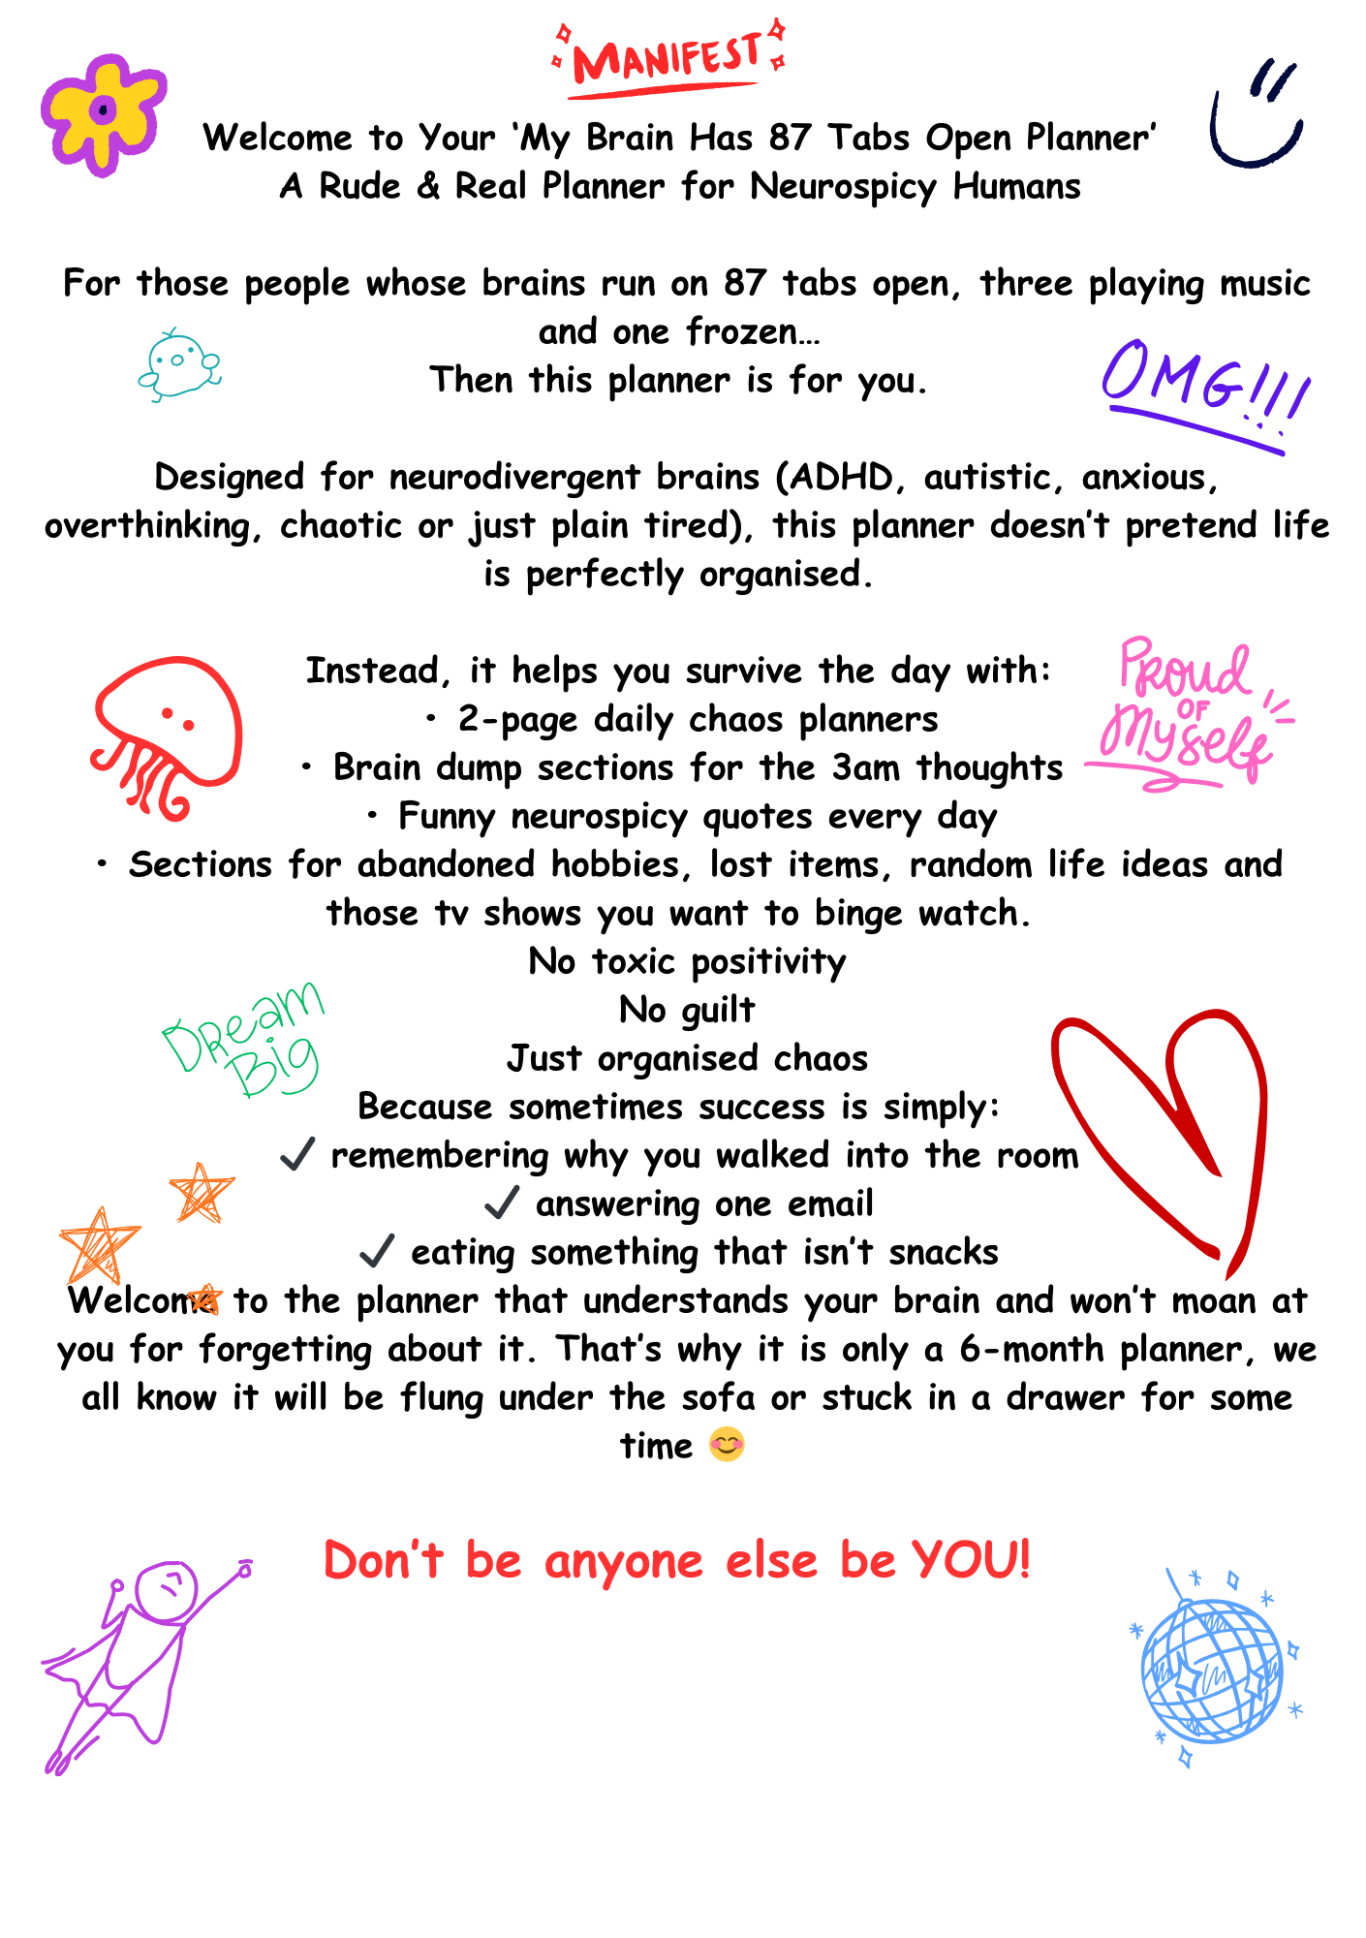 MANIFEST
Welcome to Your ‘My Brain Has 87 Tabs Open Planner’
A Rude & Real Planner for Neurospicy Humans
For those people whose brains run on 87 tabs open, three playing music
and one frozen...
Then this planner is for you.
OMG!!!
Designed for neurodivergent brains (ADHD, autistic, anxious,
overthinking, chaotic or just plain tired), this planner doesn’t pretend life
is perfectly organised.
Proud
OF
Myself
Instead, it helps you survive the day with:
• 2-page daily chaos planners
• Brain dump sections for the 3am thoughts
• Funny neurospicy quotes every day
• Sections for abandoned hobbies, lost items, random life ideas and
those tv shows you want to binge watch.
No toxic positivity
No guilt
Dream
Big
Just organised chaos
Because sometimes success is simply:
✓ remembering why you walked into the room
✓ answering one email
✓ eating something that isn’t snacks
Welcome to the planner that understands your brain and won’t moan at
you for forgetting about it. That’s why it is only a 6-month planner, we
all know it will be flung under the sofa or stuck in a drawer for some
time 😊
Don’t be anyone else be YOU!